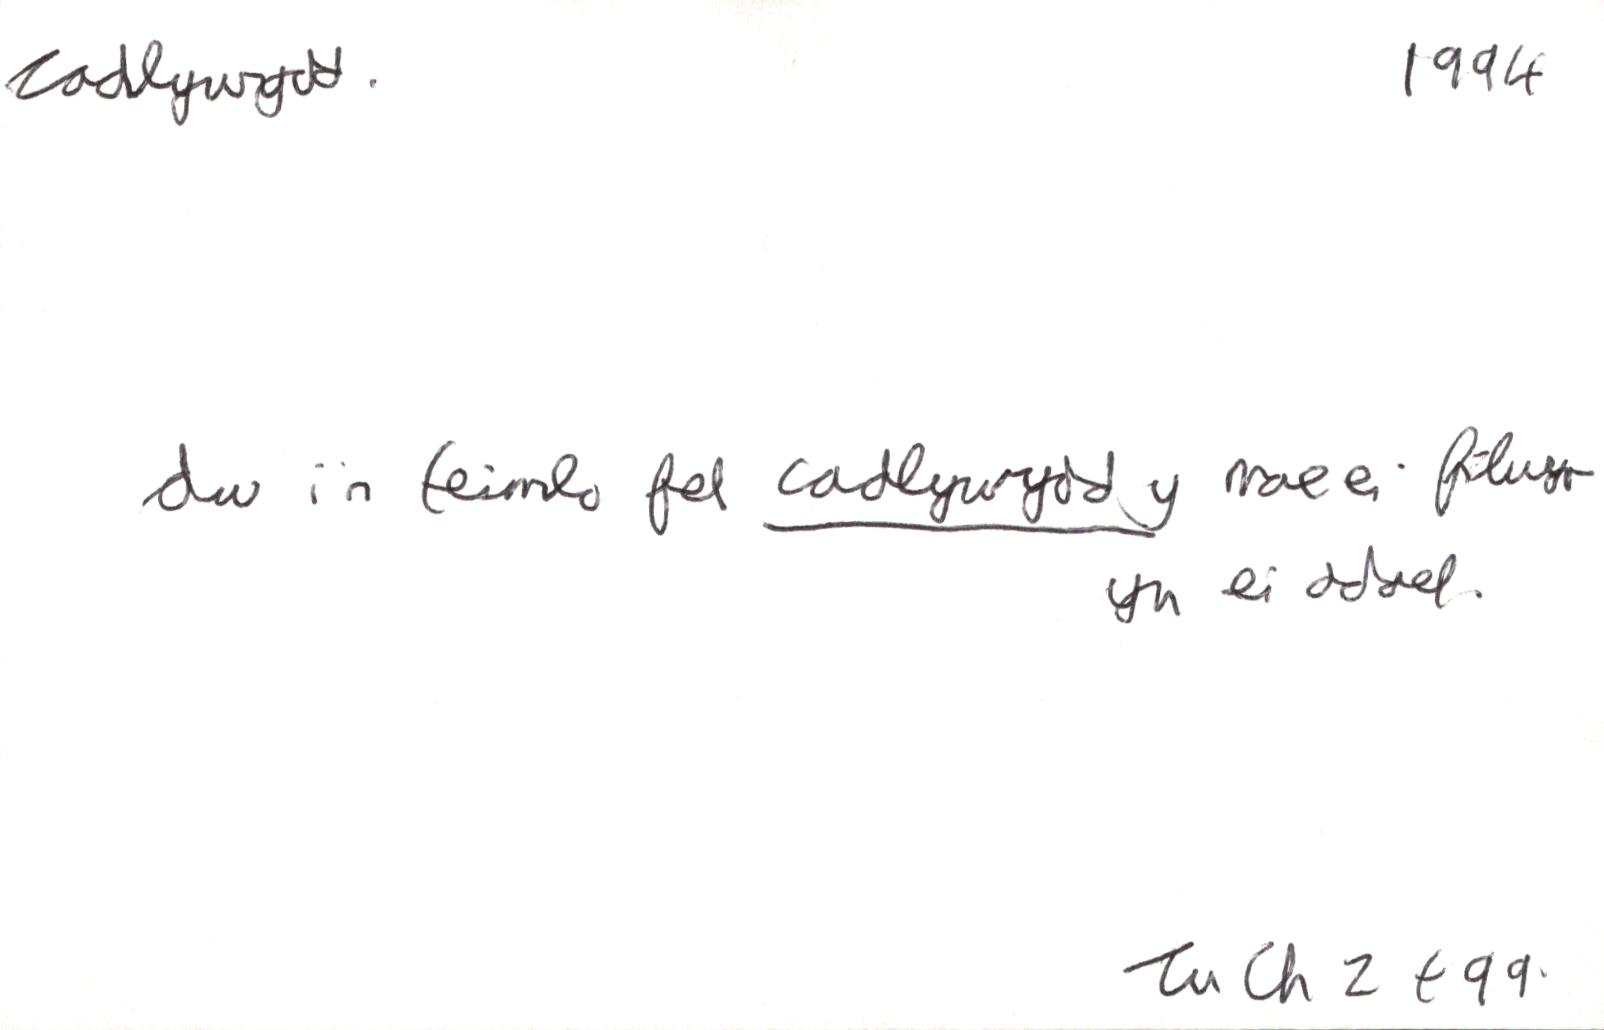 Cadlywydd. 1994
dw i'n teimlo fel cadlywydd y mae ei filwyr
yn ei ddael.
Tu Ch 2 t 99.